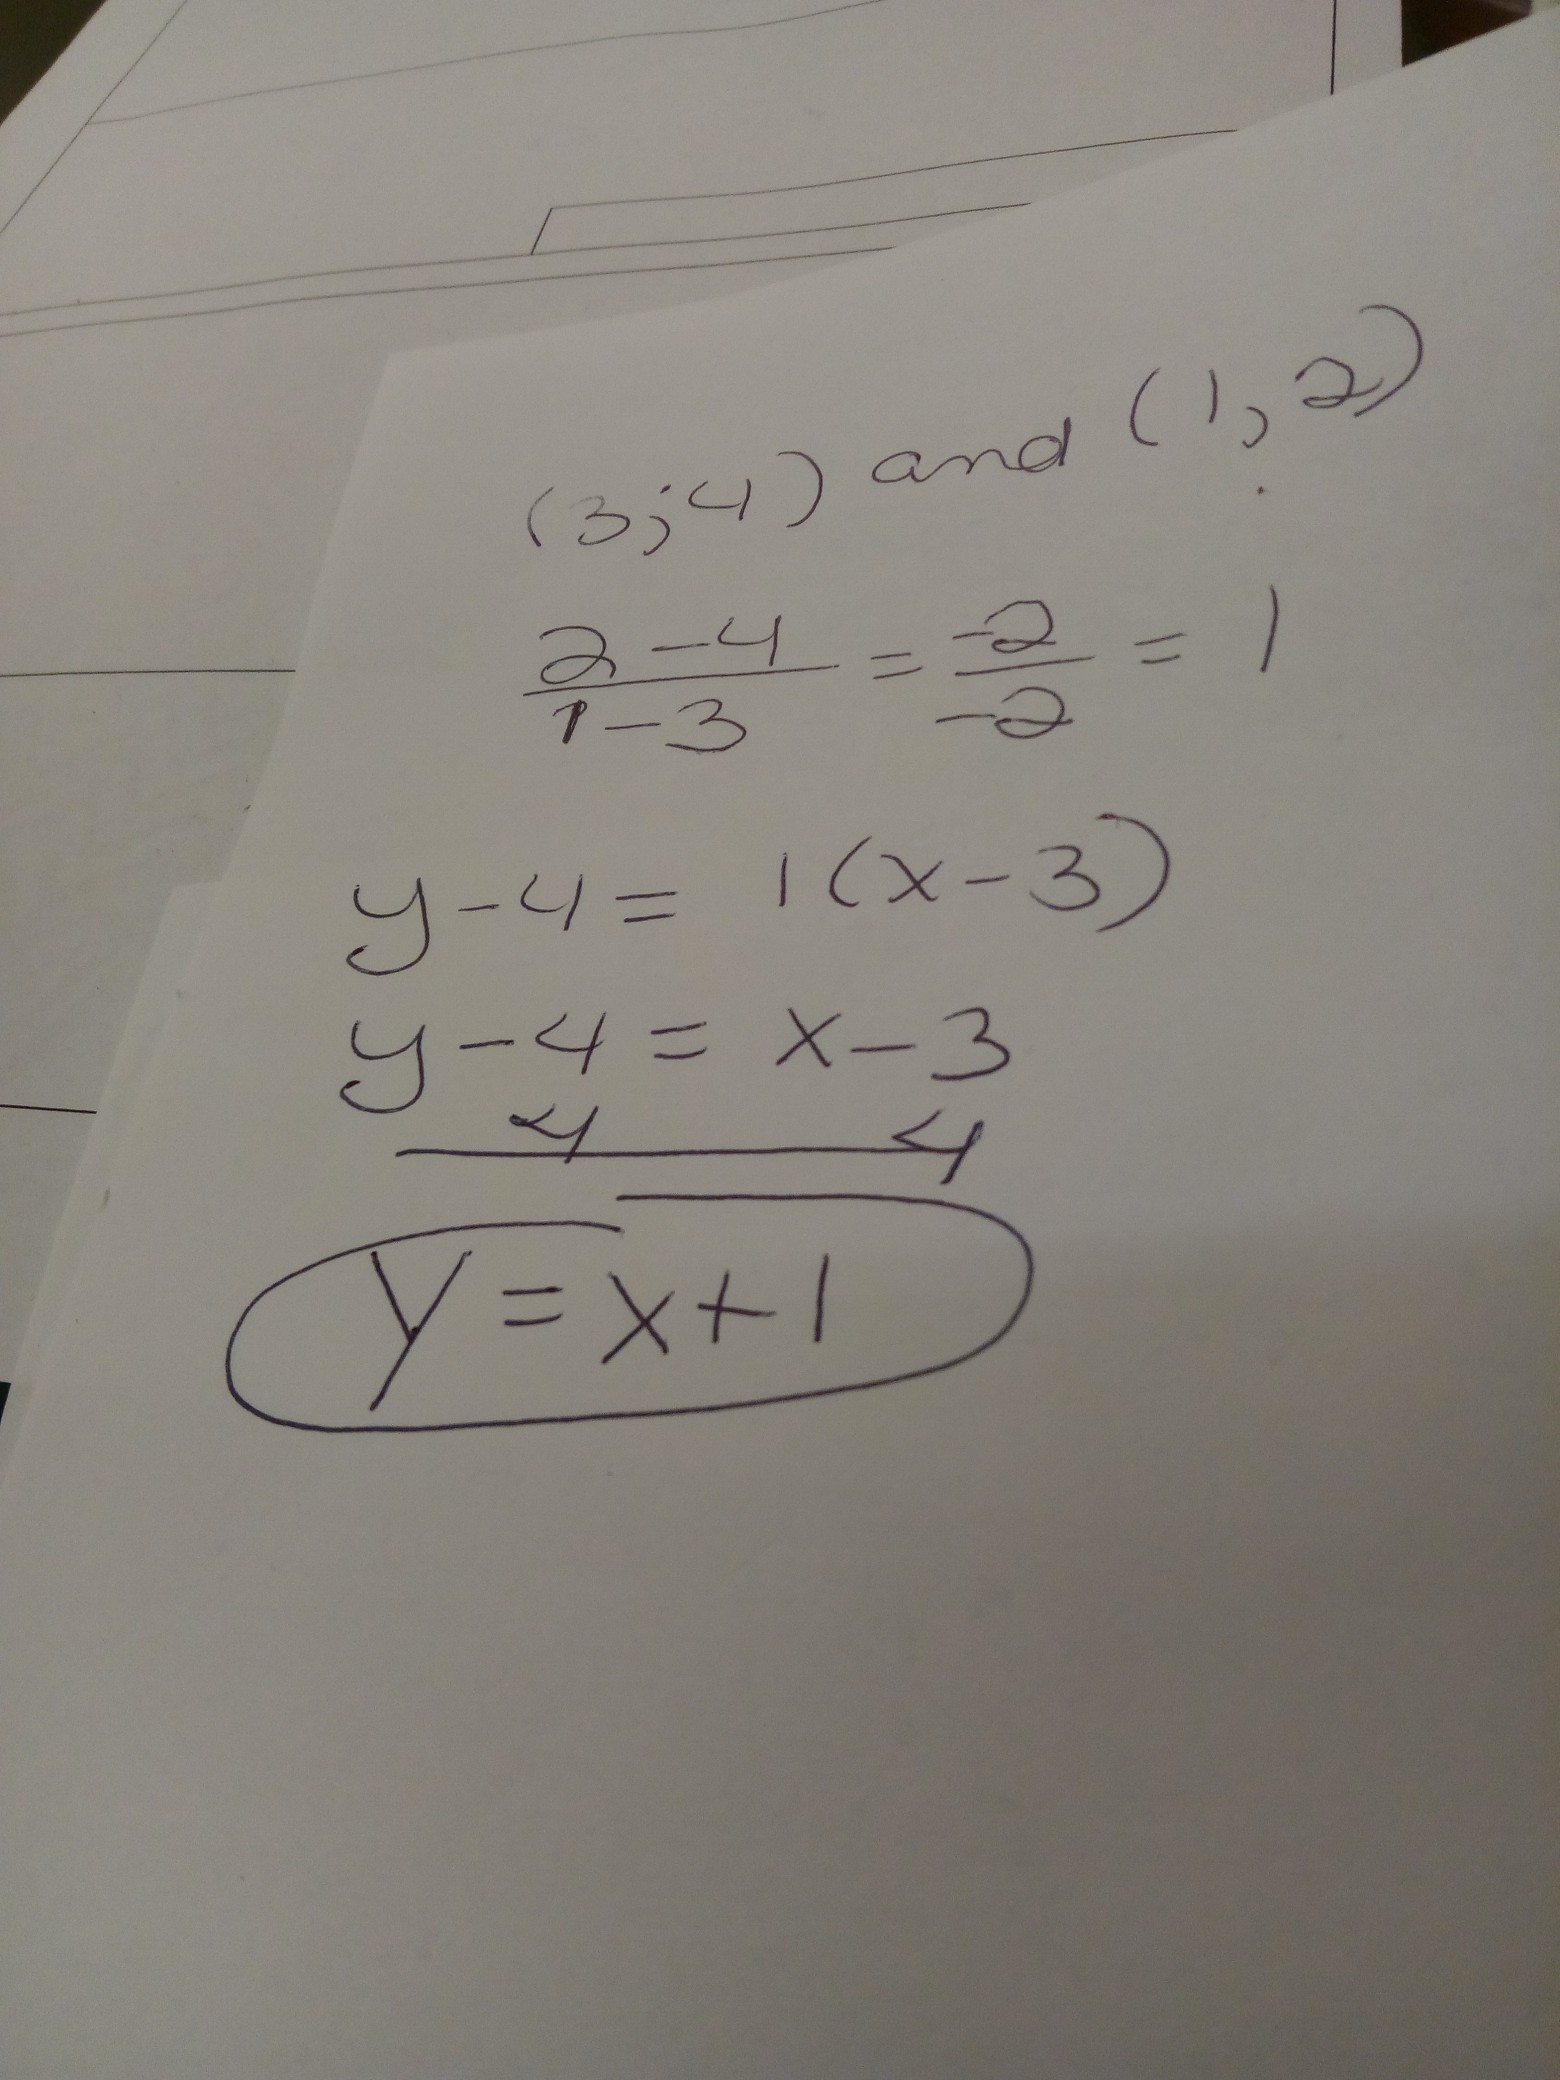 (3;4) and (1,2)
2-4/1-3 = -2/-2 = 1
y-4= 1(x-3)
y-4= x-3
4 4
y=x+1